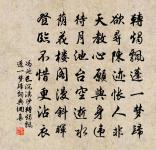 轉燭飄蓬一夢歸
欲尋陳迹悵人非
天教心願與身違
待月池台空逝水
蔭花樓閣漫斜暉
登臨不惜更沾衣
馮延巳浣溪沙轉燭飄
蓬一夢歸